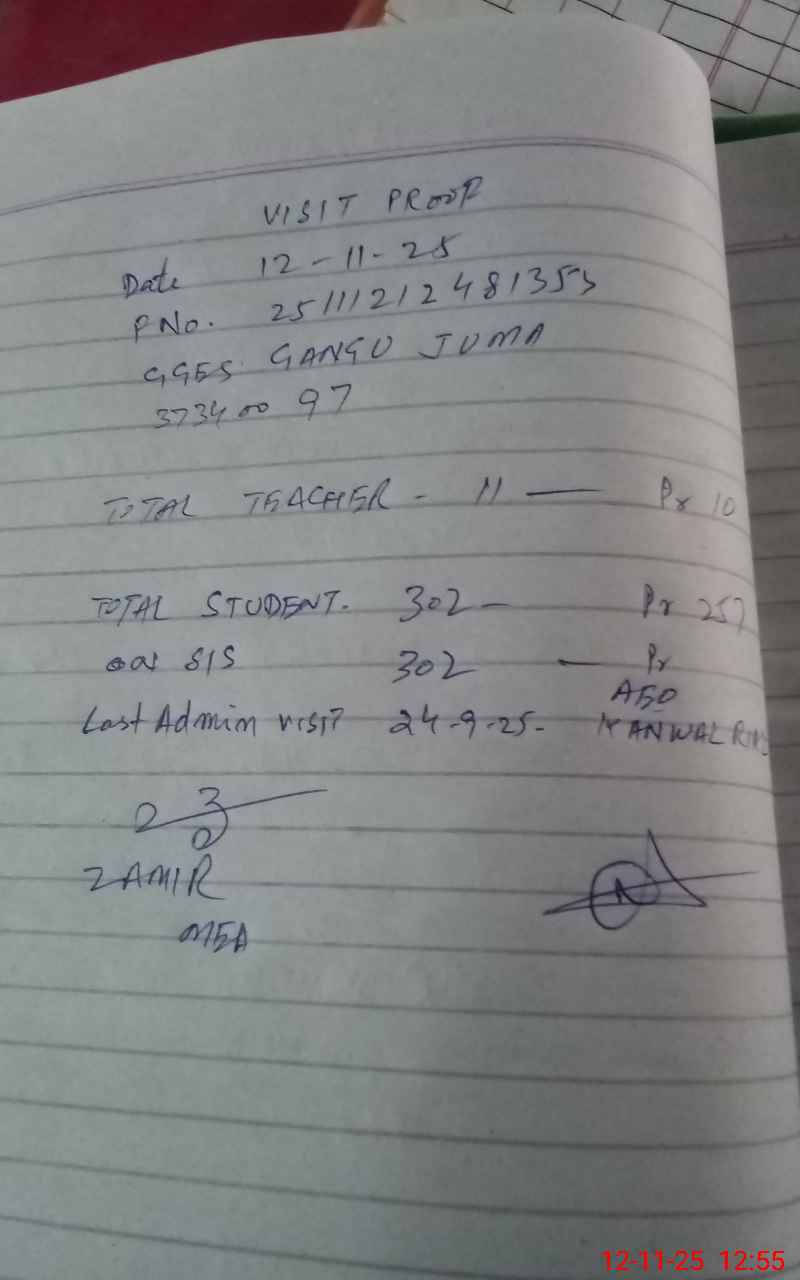 VISIT PROOF
Date 12-11-25
P No. 25111212481353
GGES. GANGU JUMA
37340097
TOTAL TEACHER - 11 — Pr 10
TOTAL STUDENT. 302 — Pr 257
on SIS 302 — Pr
AEO
Last Admin visit 24-9-25- KANWAL
ZAMIR
MEA
12-11-25 12:55